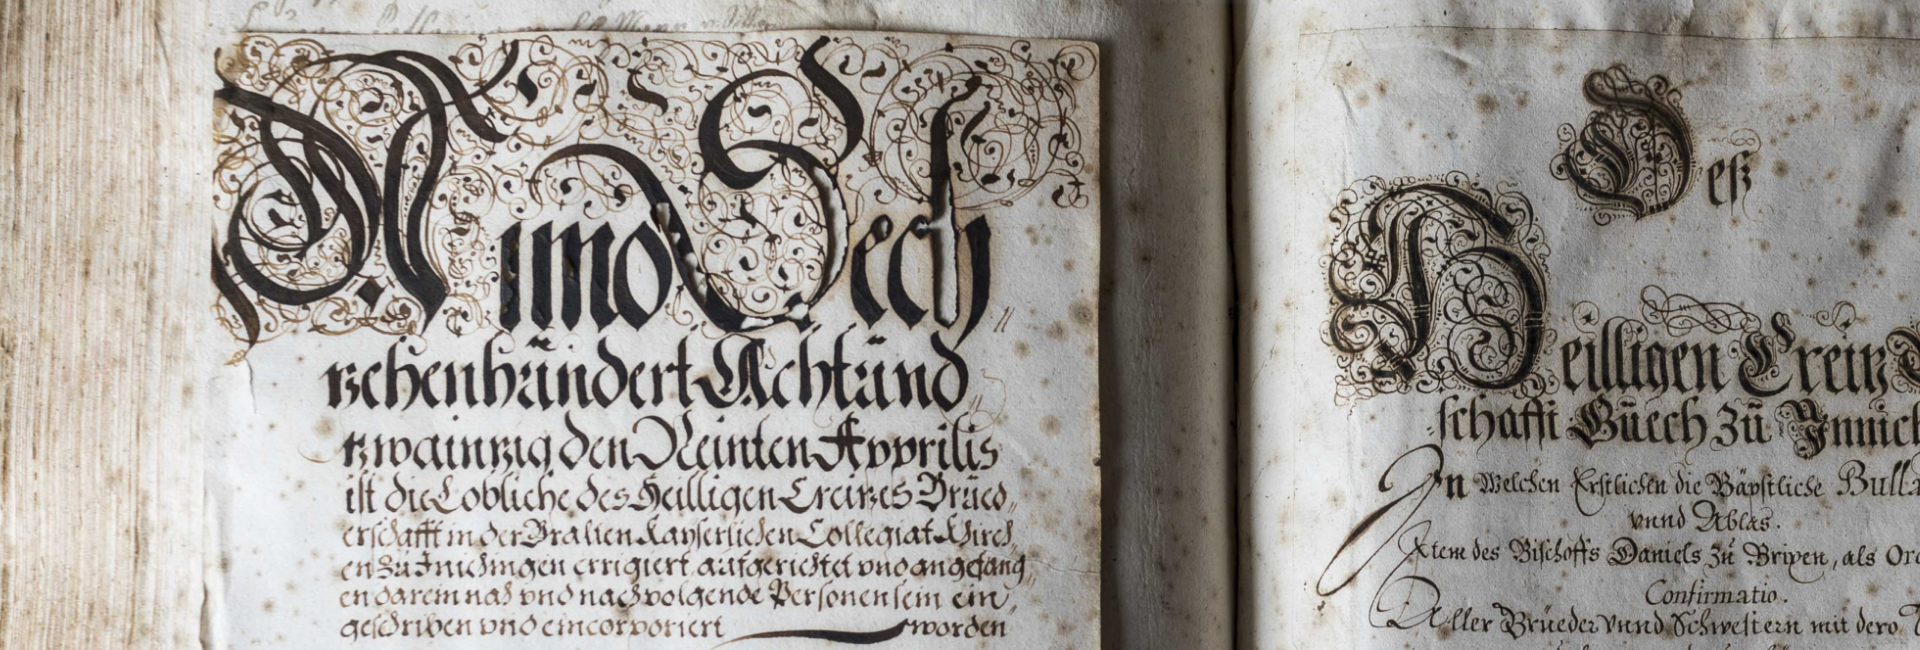 Anno Sech
zehenhŭndert Achtŭnd
zwainzig den Neinten Apprilis
ist die Lobliche des Heilligen Creizes Brŭed„
erschafft in der Vralten Kayserlichen Collegiat Kirch„
en zu Inichingen errigiert aufgerichtet vnd angefang„
en darein nach vnd nachvolgende Personen sein ein„
geschriben vnd eincorporiert worden
Deß
Heilligen Creiz
schafft Büech Zŭ
In Welchen Erstlichen die Bäpstliche
vnnd Ablas.
Item des Bischoffs Daniels Zŭ Brixen, als
Confirmatio.
Aller Brüeder Vnnd Schwestern mit dero